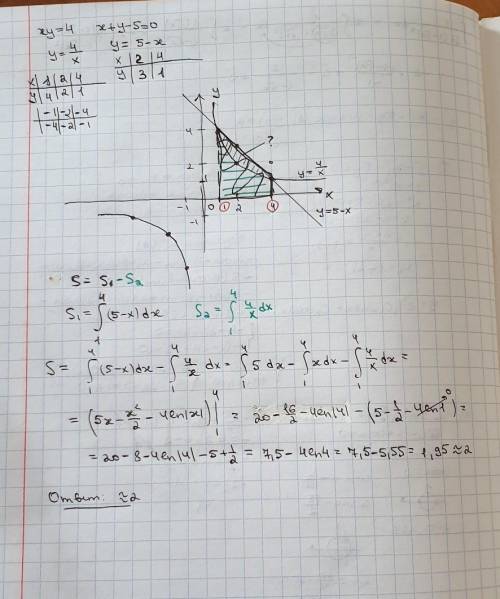 xy=4 x+y-5=0
y=4/x y=5-x
x|1|2|4 x|2|4
y|4|2|1 y|3|1
|-1|-2|-4
|-4|-2|-1
y
4
?
2
1
y=4/x
-1 0 1 2 4 x
-1
y=5-x
S= S₁-S₂
S₁=∫₁⁴(5-x)dx S₂=∫₁⁴ 4/x dx
S= ∫₁⁴(5-x)dx-∫₁⁴ 4/x dx=∫₁⁴ 5 dx-∫₁⁴ x dx-∫₁⁴ 4/x dx=
=(5x-x²/2-4ln|x|)|₁⁴= 20-16/2-4ln|4|-(5-1/2-4ln1⁰)=
=20-8-4ln|4|-5+1/2= 7,5-4ln4= 7,5-5,55= 1,95≈2
Ответ: ≈2